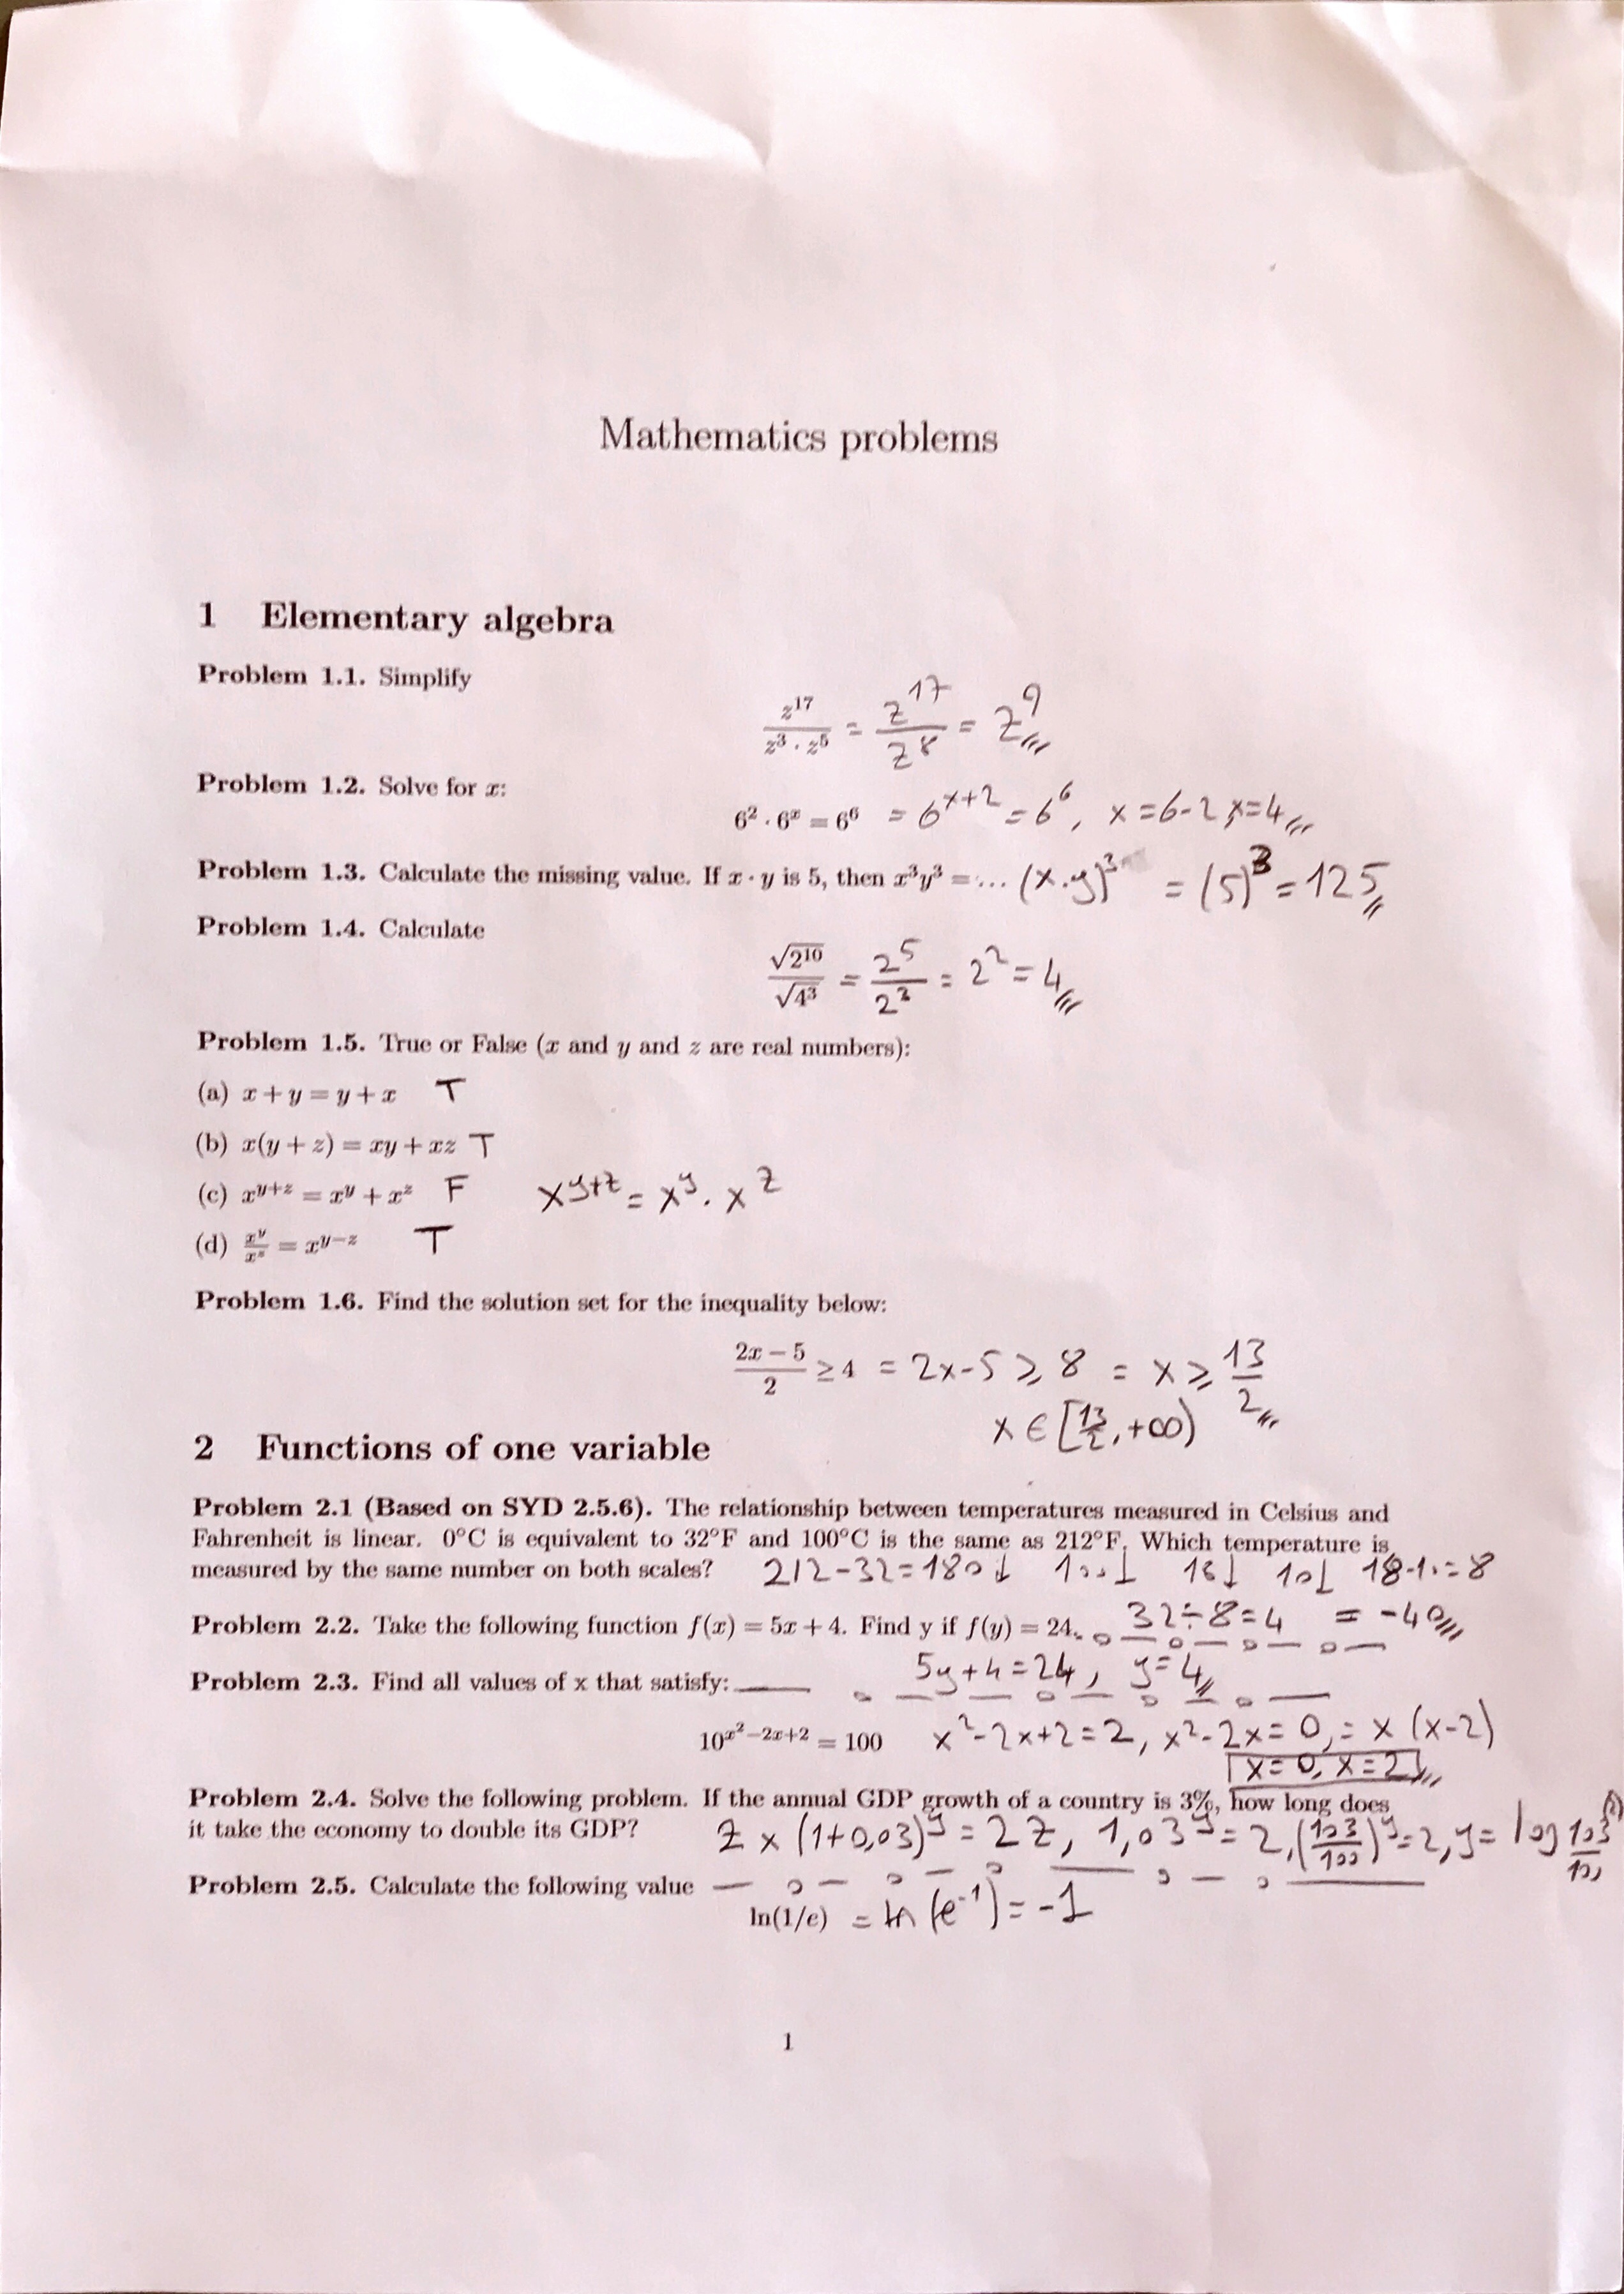 Mathematics problems
1 Elementary algebra
Problem 1.1. Simplify
z^17 / (z^3 · z^5) = z^17 / z^8 = z^9
Problem 1.2. Solve for x:
6^2 · 6^x = 6^6 = 6^(x+2) = 6^6, x = 6-2, x=4
Problem 1.3. Calculate the missing value. If x · y is 5, then x^3y^3 = ... (x.y)^3 = (5)^3 = 125
Problem 1.4. Calculate
√2^10 / √4^3 = 2^5 / 2^3 = 2^2 = 4
Problem 1.5. True or False (x and y and z are real numbers):
(a) x + y = y + x T
(b) x(y + z) = xy + xz T
(c) x^(y+z) = x^y + x^z F x^(y+z) = x^y . x^z
(d) x^y / x^z = x^(y−z) T
Problem 1.6. Find the solution set for the inequality below:
(2x − 5) / 2 ≥ 4 = 2x-5 ⩾ 8 = x ⩾ 13/2
x ∈ [13/2, +∞)
2 Functions of one variable
Problem 2.1 (Based on SYD 2.5.6). The relationship between temperatures measured in Celsius and
Fahrenheit is linear. 0°C is equivalent to 32°F and 100°C is the same as 212°F. Which temperature is
measured by the same number on both scales? 212-32=180↓ 100↓ 18↓ 10↓ 18-10=8
32÷8=4 = -40
Problem 2.2. Take the following function f(x) = 5x + 4. Find y if f(y) = 24.
5y+4=24, y=4
Problem 2.3. Find all values of x that satisfy:
10^(x^2−2x+2) = 100 x^2-2x+2=2, x^2-2x=0, = x (x-2)
x=0, x=2
Problem 2.4. Solve the following problem. If the annual GDP growth of a country is 3%, how long does
it take the economy to double its GDP? Z × (1+0,03)^y = 2Z, 1,03^y = 2, (103/100)^y = 2, y = log 103/100 (2)
Problem 2.5. Calculate the following value
ln(1/e) = ln (e^-1) = -1
1